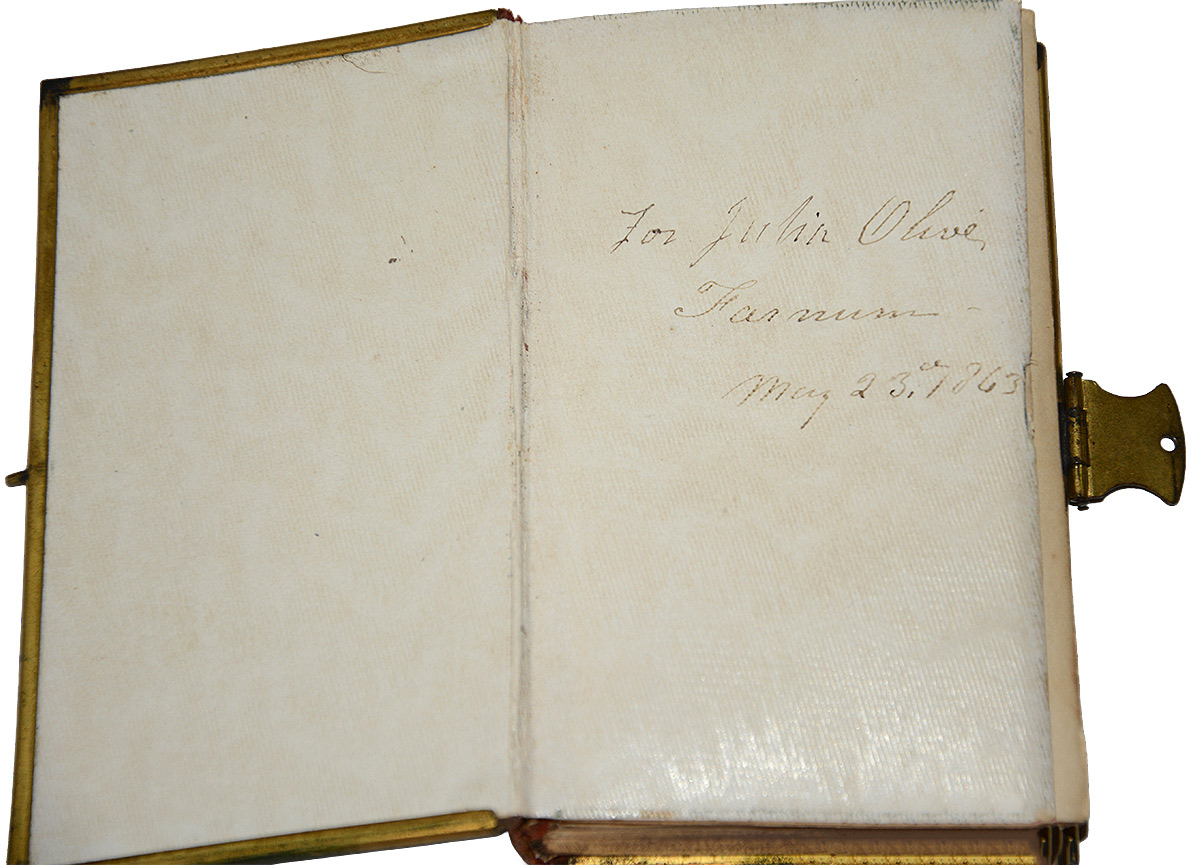 For Julia Olive
Farnum -
May 23.d 1863